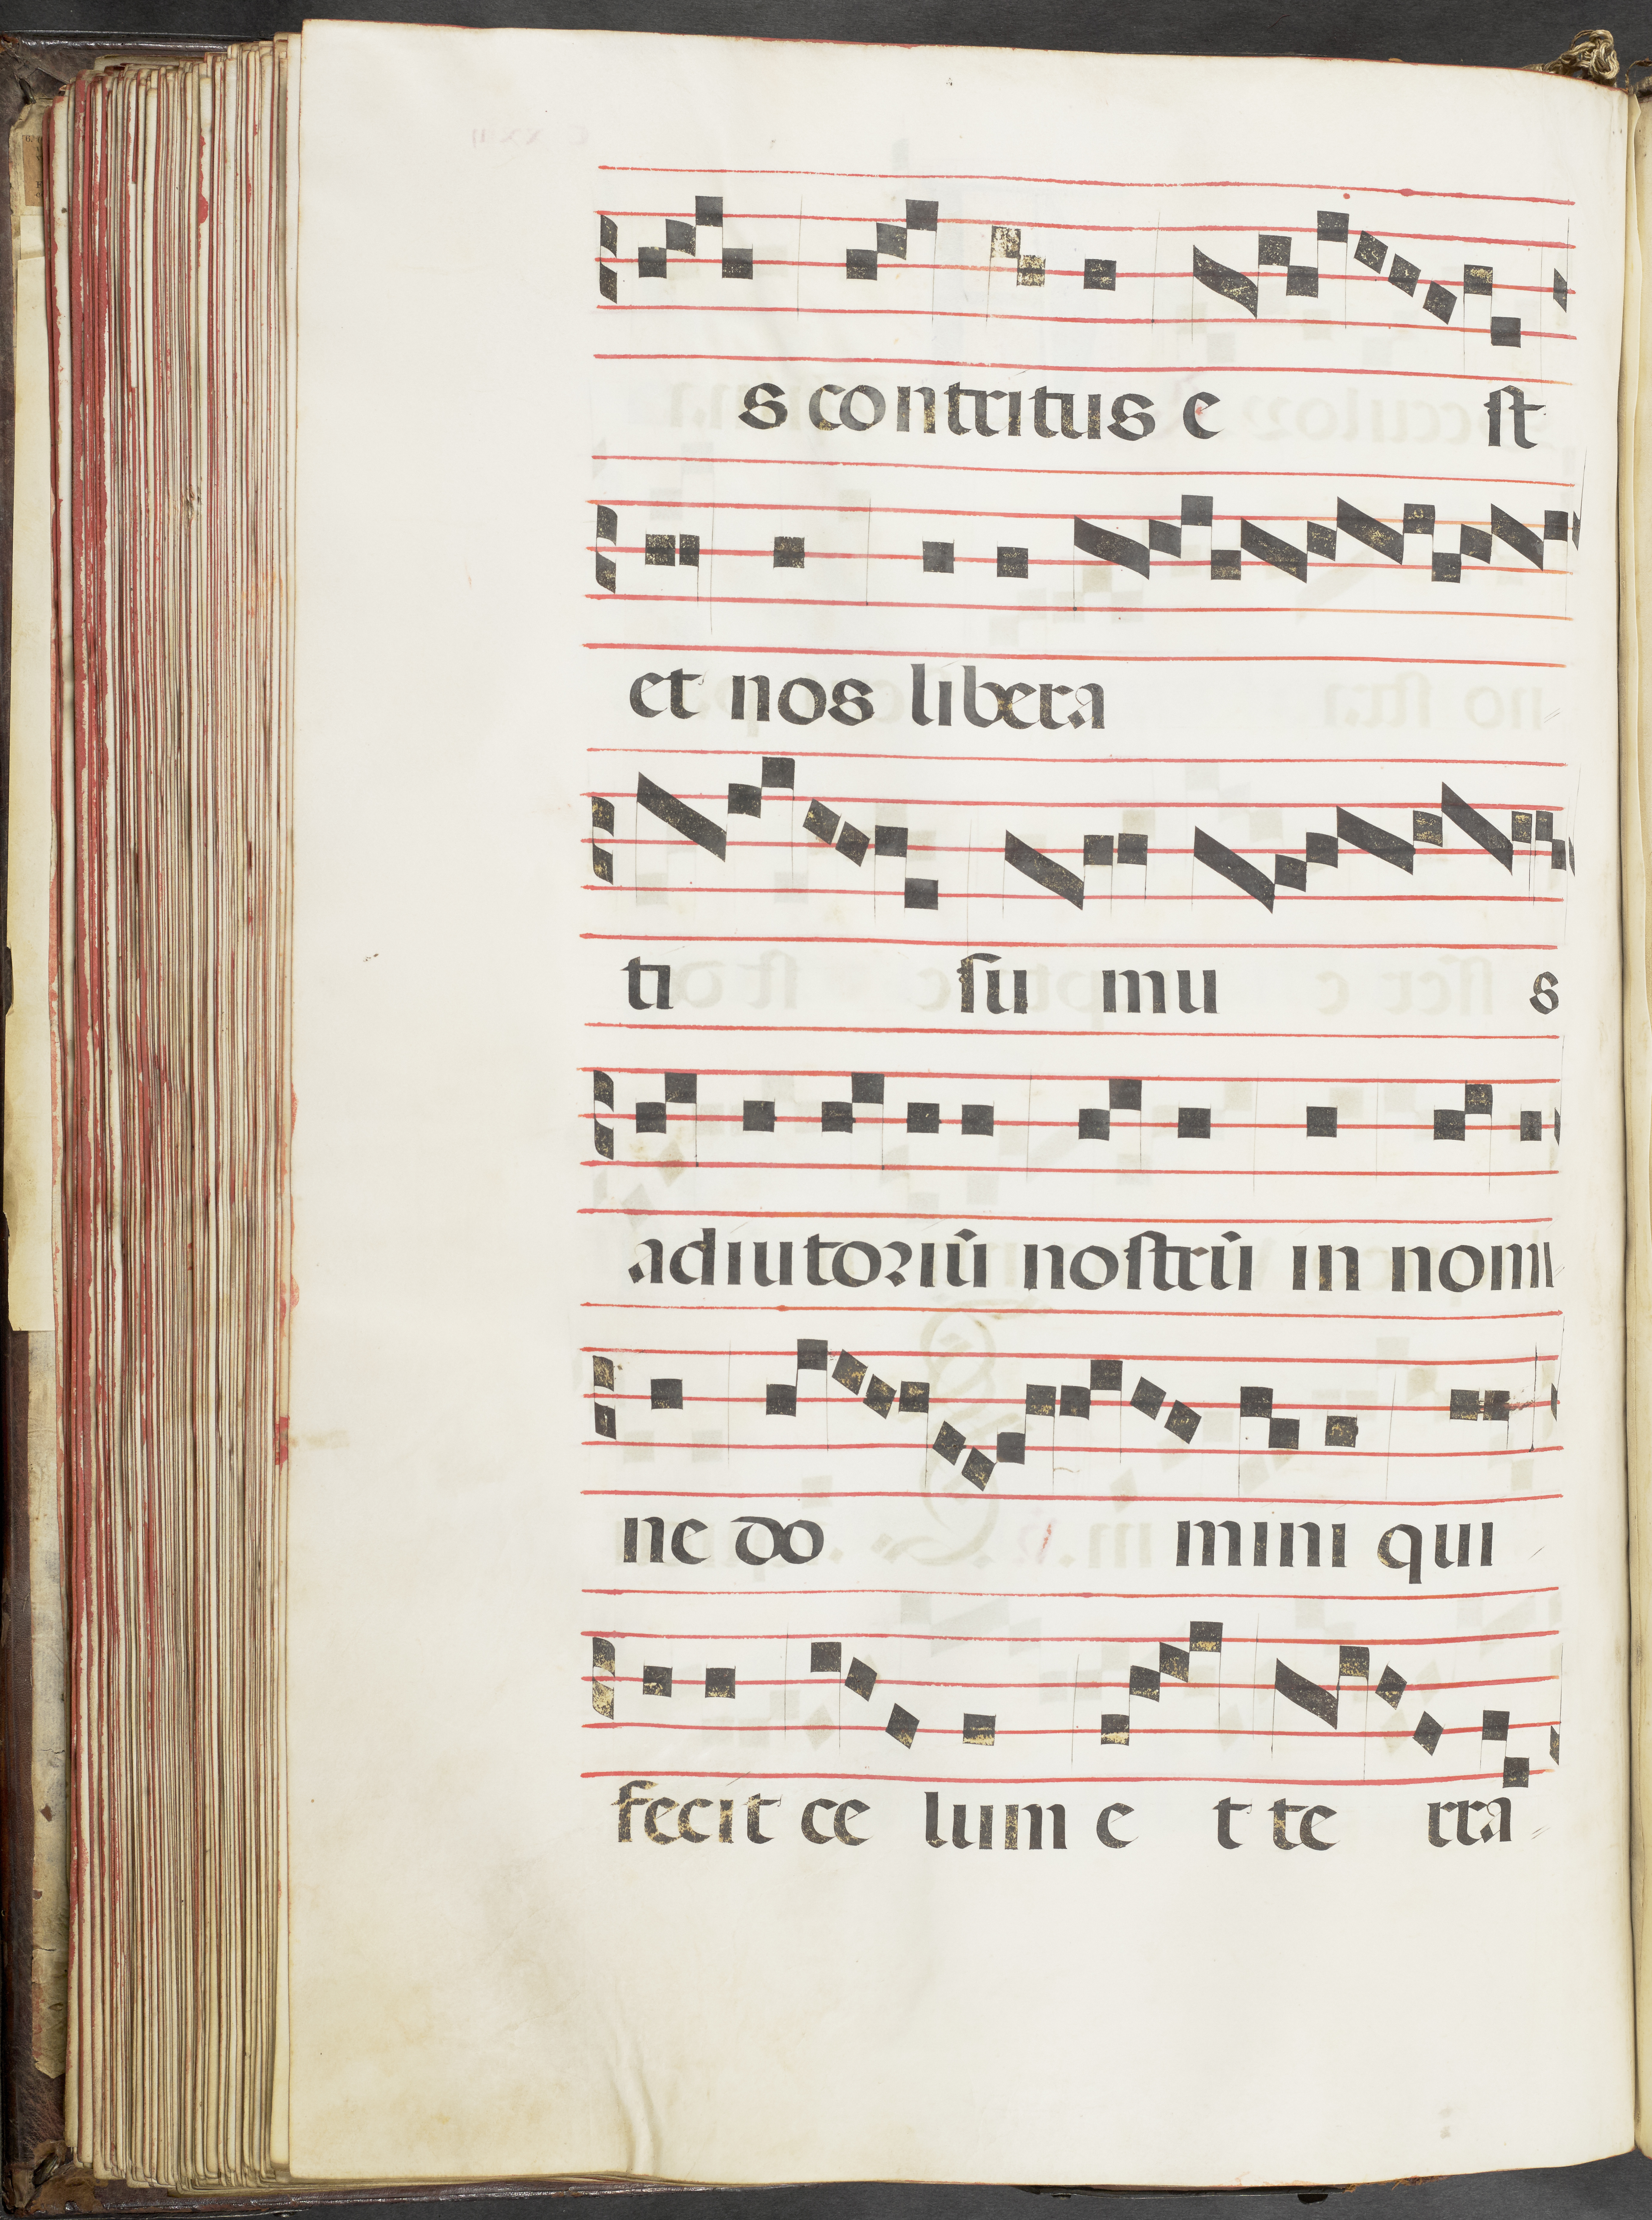 s contritus e ſt
et nos libera
ti ſu mu s
adiutoꝛiū noſtrū in nomi
ne do mini qui
fecit ce lum e t te rra